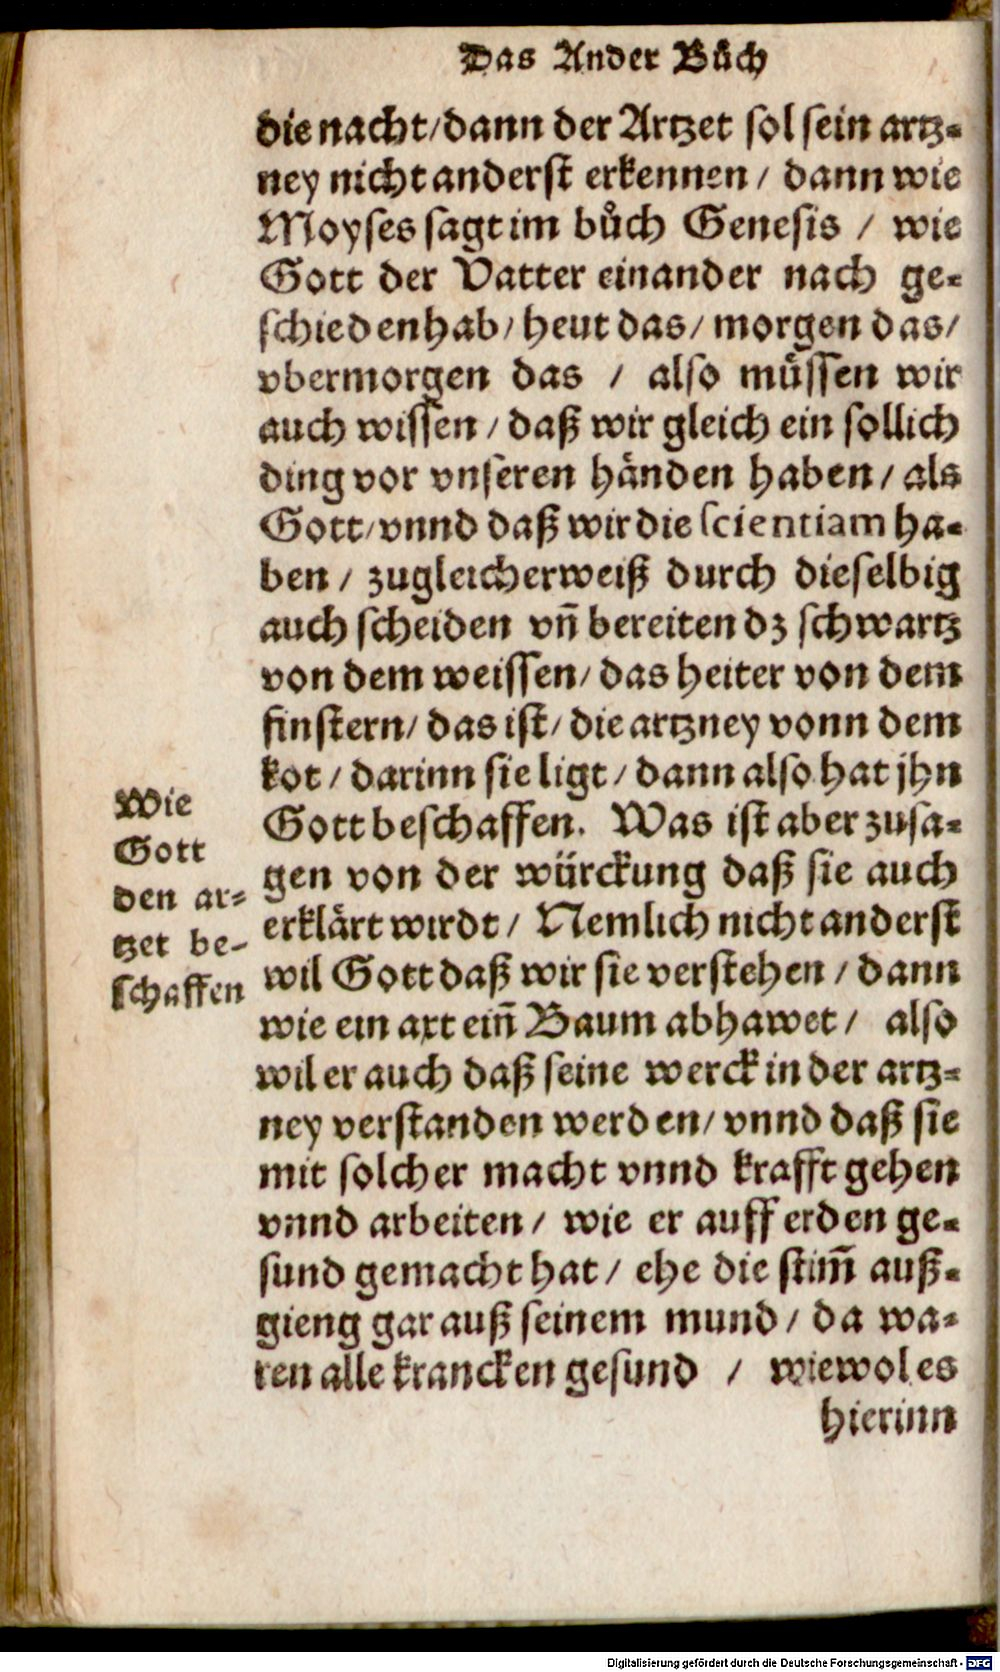 Das Ander Bůch
die nacht/dann der Artzet sol sein artz-
ney nicht anderst erkennen / dann wie
Moyses sagt im bůch Genesis / wie
Gott der Vatter einander nach ge-
schieden hab/ heut das/ morgen das/
vbermorgen das / also müssen wir
auch wissen / daß wir gleich ein sollich
ding vor vnseren händen haben / als
Gott/vnnd daß wir die scientiam ha-
ben / zugleicherweiß durch dieselbig
auch scheiden vñ bereiten dz schwartz
von dem weissen/ das heiter von dem
finstern/ das ist/ die artzney vonn dem
kot / darinn sie ligt / dann also hat jhn
Gott beschaffen. Was ist aber zusa-
gen von der würckung daß sie auch
erklärt wirdt / Nemlich nicht anderst
wil Gott daß wir sie verstehen / dann
wie ein axt eiñ Baum abhawet / also
wil er auch daß seine werck in der artz-
ney verstanden werden/ vnnd daß sie
mit solcher macht vnnd krafft gehen
vnnd arbeiten / wie er auff erden ge-
sund gemacht hat / ehe die stim̄ auß-
gieng gar auß seinem mund / da wa-
ren alle krancken gesund / wiewol es
hierinn
Wie
Gott
den ar-
tzet be-
schaffen
Digitalisierung gefördert durch die Deutsche Forschungsgemeinschaft - DFG